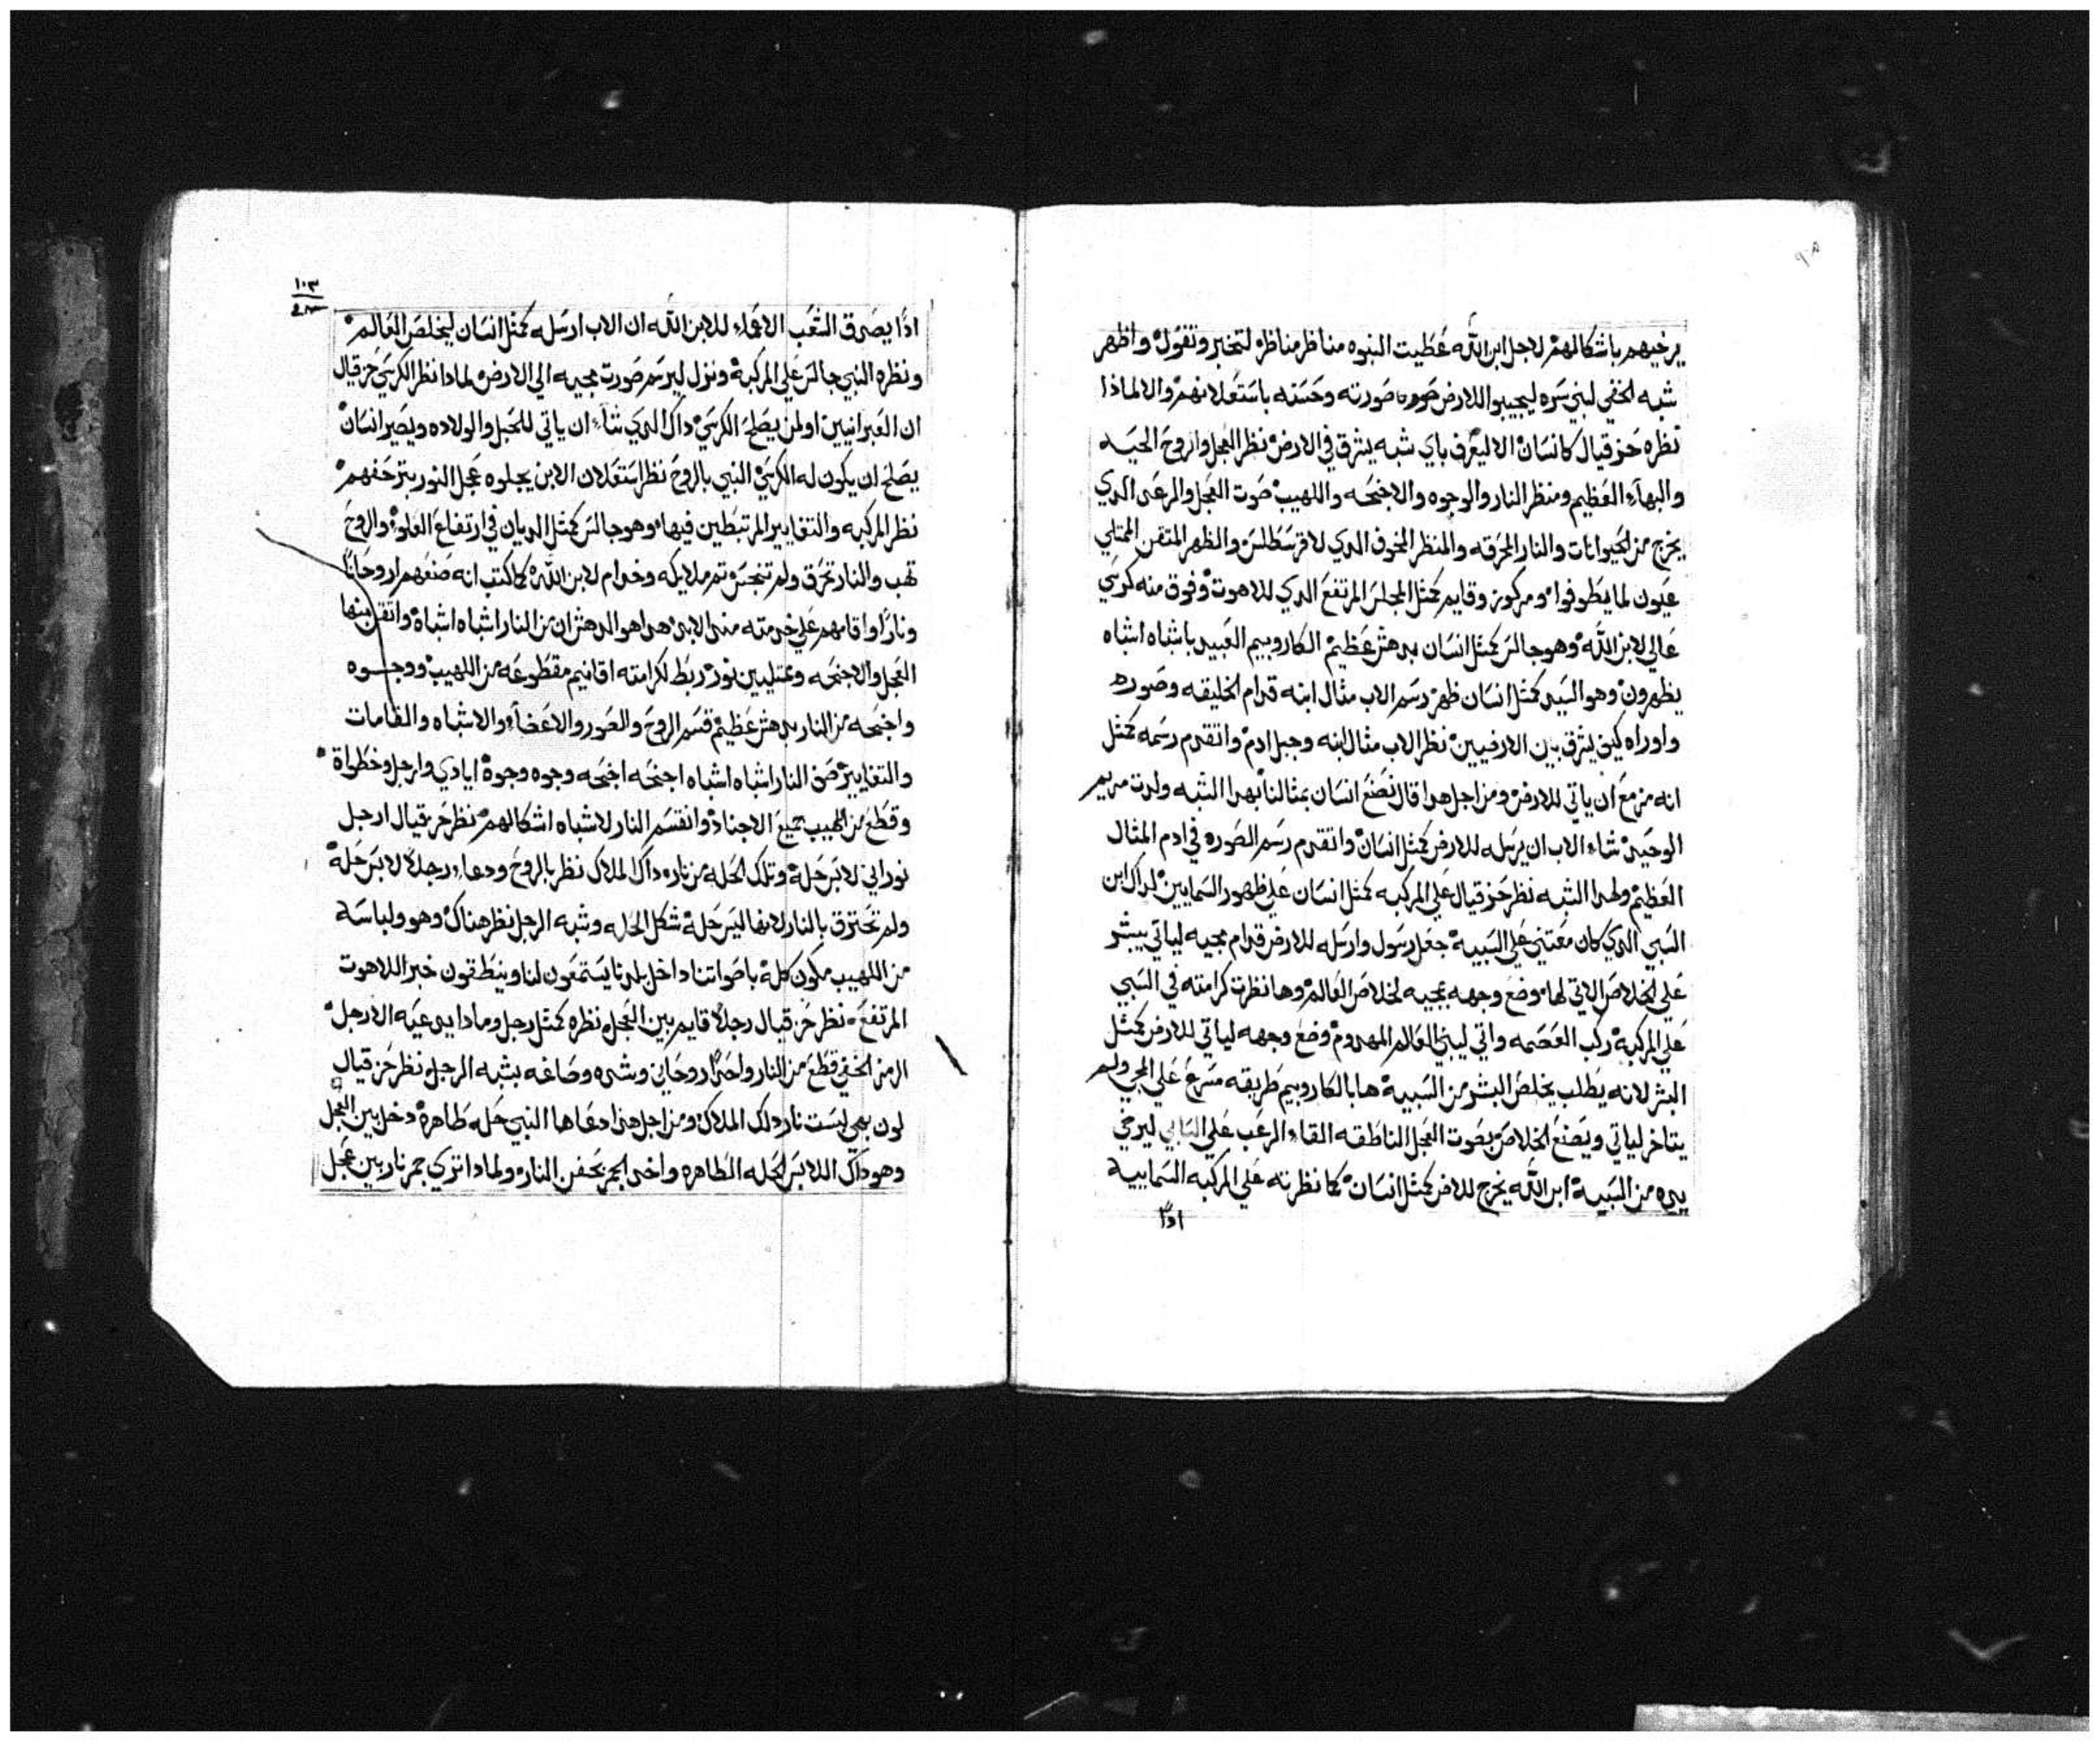 يرخيهم باشكالهم لاجل ابن الله عُطيت النبوه مناظر مناظره لتخبر وتقول واظهر
شبه الخفي لبني سره ليجيبوا للارض صورته وحسنه باستعلانهم والا لماذا
نظره حزقيال كانسان الا ليعرف باي شبه يشرق في الارض نظر العجل واروح الحيه
والبهاء العظيم ومنظر النار والوجوه والاجنحه واللهيب صوت العجل والرعد الدي
يخرج من الحيوانات والنار المحرقه والمنظر المخوف الدي لا والظهر المتقن الممتلي
عيون لما يطوفوا ومركوز وقايم كمثل المجلس المرتفع الدي للاهوت وفوق منه كرسي
عالي لابن الله وهو جالس كمثل انسان بدهش عظيم الكاروبيم العبيد باشباه اشباه
يظهرون وهو السيد كمثل انسان ظهر رسم الاب مثال ابنه قدام الخليقه وصوره
واوراه كيف يشرق بين الارضيين نظر الاب مثال ابنه وجبل ادم واتقدم رسمه كمثل
انه مزمع ان ياتي للارض ومن اجل هدا قال نصنع انسان بمثالنا بهدا الشبه ولدت مريم
الوحيد شاء الاب ان يرسله للارض كمثل انسان واتقدم رسم الصوره في ادم المثال
العظيم ولهدا الشبه نظر حزقيال علي المركبه كمثل انسان علي ظهور السمايين لداك ابن
السبي الدي كان معتني علي السبيه جعل رسول وارسله للارض قدام مجيه لياتي يبشر
علي الخلاص الاتي لها وضع وجهه بمجيه لخلاص العالم وها نظرت كرامته في السبي
علي المركبه ركب العصمه واتي ليبني العالم المهدوم وضع وجهه لياتي للارض كمثل
البشر لانه يطلب يخلص البشر من السبيه ها بالكاروبيم طريقه مسرع علي المجي ولم
يتاخر لياتي ويصنع الخلاص بصوت العجل الناطقه القاء الرعب علي البابلي ليرخي
يده من السبيه ابن الله يخرج للارض كمثل انسان كما نظرته علي المركبه السماييه
ادًا
١٠٣
ادًا يصدق الشعب الاعماء للابن الله ان الاب ارسله كمثل انسان ليخلص العالم
ونظره النبي جالس علي المركبه ونزل ليرسم صورت مجيه الي الارض لمادا نظر الكرسي حزقيال
ان العبرانيين اولمن يصلح الكرسي داك الدي شاء ان ياتي للحبل والولاده ويصير انسان
يصلح ان يكون له الكرسي النبي بالروح نظر استعلان الابن يجلوه عجل النور بتزحفهم
نظر المركبه والتغايير المرتبطين فيها وهو جالس كمثل الديان في ارتفاع العلوه والروح
تهب والنار تحرق ولم تنجس تم ملايكه وخدام لابن الله كما كتب انه صنعهم ارواحانًا
ونارًا واقامهم علي خدمته مند الابد هدا هو الدهش ان من النار اشباه اشباه واتقن منها
العجل والاجنحه وممتليين نور ربط لكرامته اقانيم مقطوعه من اللهيب ووجوه
واجنحه من النار بدهش عظيم قسم الروح والصور والاعضاء والاشباه والقامات
والتغايير صف النار اشباه اشباه اجنحه اجنحه وجوه وجوه ايادي وارجل وخطواة
وقطع من اللهيب جميع الاجناد وانقسم النار لاشباه اشكالهم نظر حزقيال ارجل
نوراني لابس حله وتلك الحله من ناره داك الملاك نظر بالروح ودعاه رجلا لابس حله
ولم تحترق بالنار لانها ليس حله شكل الحله وشبه الرجل نظر هناك وهو ولباسه
من اللهيب مكون كله باصواتنا داخل بلدنا يستمعون لنا وينطقون خبر اللاهوت
المرتفع نظر حزقيال رجلًا قايم بين العجل نظره كمثل رجل ومادا يدعيه الا رجل
الرمز الخفي قطع من النار واحدًا روحاني وشده وصاغه بشبه الرجل نظر حزقيال
لون بهي ليست نار دلك الملاك ومن اجل هدا دعاها النبي حله طاهره دخل بين العجل
وهو داك اللابس الحله الطاهره واخد الجمر بحفن النار ولمادا اتري جمر نار بين عجل